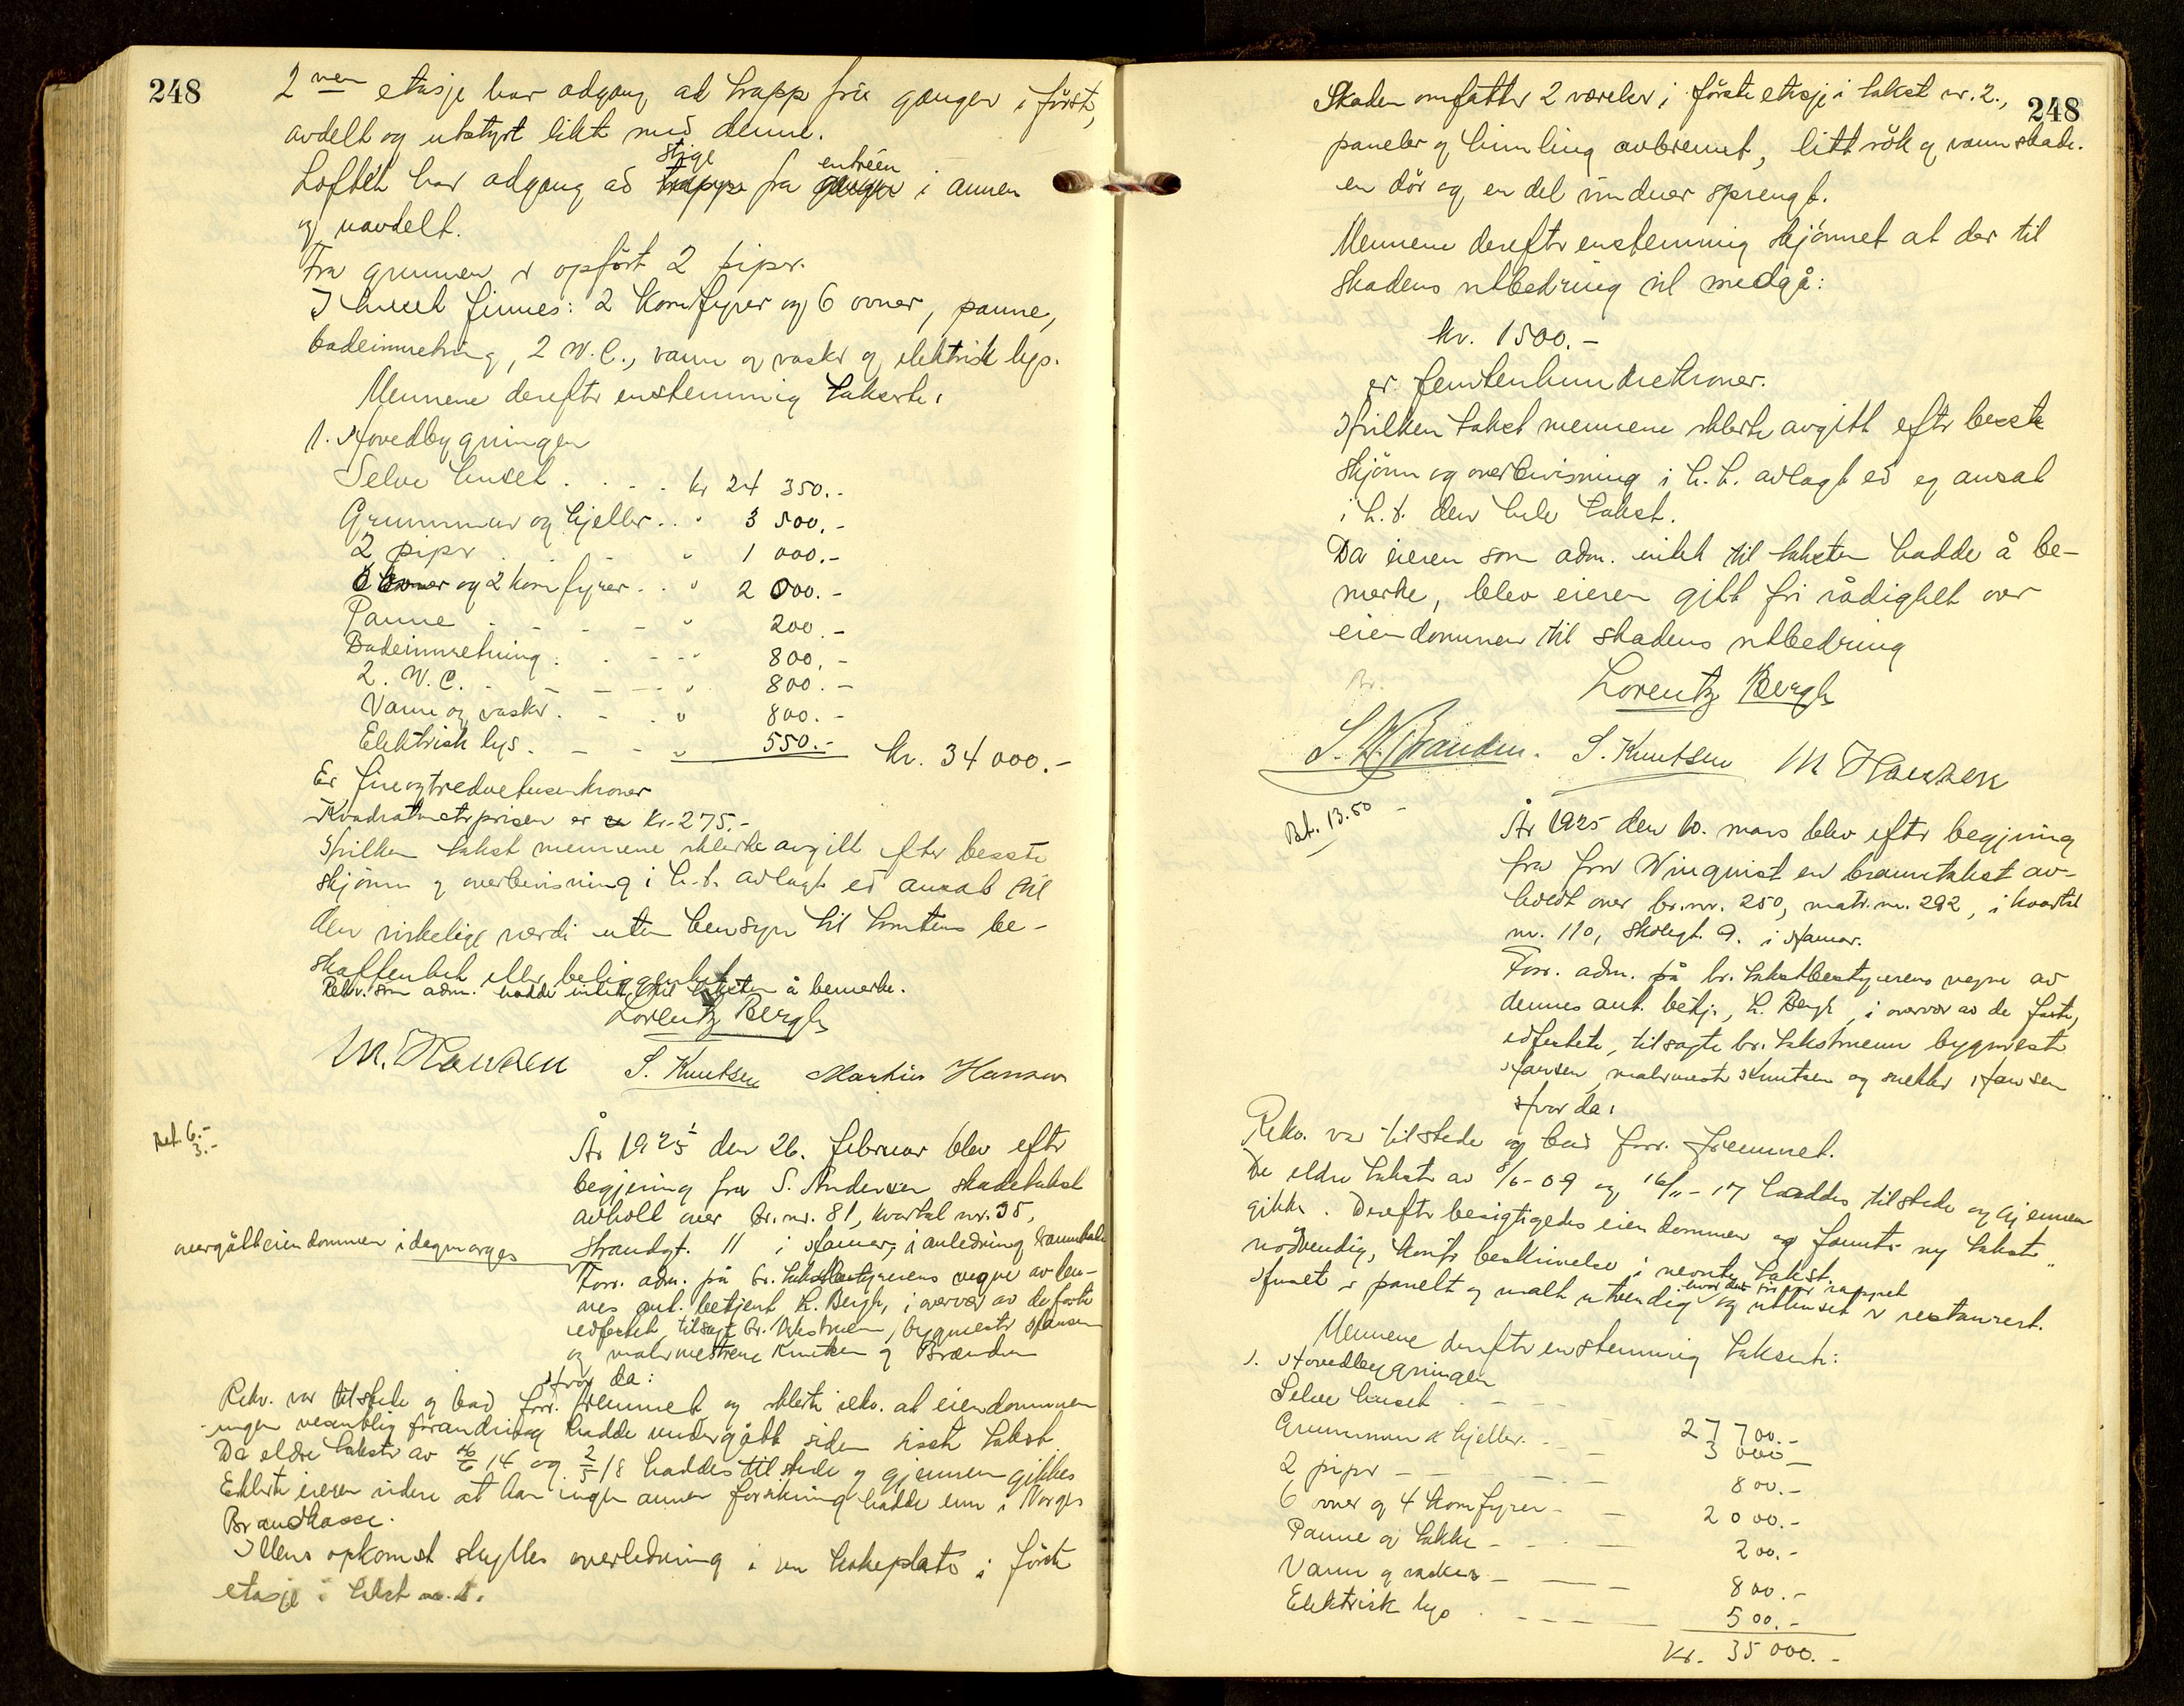 248
2nen etasje har adgang ad trapp fra gangen i förste,
avdelt og utstyrt likt med denne.
stige entréen
Loftet har adgang ad trappe fra gangen i annen
og uavdelt.
Fra grunnen er opfört 2 piper.
I huset finnes: 2 komfyrer og 6 ovner, panne,
badeinnretning, 2 W.C., vann og vasker og elektrisk lys.
Mennene derefter enstemmig takserte:
1. Hovedbygningen
Selve huset . . . . kr 24 350.-
Grunnmur og kjeller . . " 3 500.-
2 piper . . . " 1 000.-
6 ovner og 2 komfyrer . . " 2 000.-
Panne . - - - " 200.-
Badeinnretning . . - - " 800.-
2 W.C. . - - - " 800.-
Vann og vasker . - . " 800.-
Elektrisk lys . - - " 550.- kr. 34 000.-
Er fireogtredvetusenkroner
Kvadratmeterprisen er kr. 275.-
Hvilken takst mennene erklærte avgitt efter beste
skjönn og overbevisning i h.t. avlagt ed ansat til
den virkelige verdi uten hensyn til tomtens be-
skaffenhet eller beliggenhet.
Rekv. som adm. hadde intet til taksten å bemerke.
Lorentz Bergh
M. Hansen S. Knutsen Markus Hansen
Bet. 6.-
3.-
År 1925 den 26. februar blev efter
begjering fra S. Andersen skadetakst
avholt over br.nr. 81, kvartal nr. 35,
Strandgt. 11 i Hamar, i anledning brannskade
overgått eiendommen idag morges
Forr. adm. på br. takstbestyrerens vegne av den-
nes aut. betjent L. Bergh, i overvær av de faste
edfestet tilsagte br. takstmenn, bygmester Hansen
og malermestrene Knutsen og Brænden
Hvor da:
Rekv. var tilstede og bad forr. fremmet og erklærte rekv. at eiendommen
ingen vesentlig forandring hadde undergått siden siste takst
De eldre takster av 26/6 14 og 2/5 18 haddes tilstede og gjennemgikkes
Erklærte eieren videre at han ingen annen forsikring hadde enn i Norges
Brandkasse.
Illens opkomst skyldes overledning i en kokeplate i förste
etasje i takst nr. 2.
248
Skaden omfatter 2 værelser i förste etasje i takst nr. 2.,
paneler og himling avbrennt, litt rök og vannskade.
en dör og en del vinduer sprengt.
Mennene derefter enstemmig skjönnet at der til
skadens utbedring vil medgå:
kr. 1500.-
er femtenhundrekroner.
Hvilken takst mennene erklærte avgitt efter beste
skjönn og overbevisning i h.t. avlagt ed og ansat
i h.t. den hele takst.
Da eieren som adm. intet til taksten hadde å be-
merke, blev eieren gitt fri rådighet over
eiendommen til skadens utbedring
Lorentz Bergh
S. W. Brænden. S. Knutsen M Hansen
Bet. 13.50 -
År 1925 den 10. mars blev efter begjering
fra fru Winquist en branntakst av-
holdt over br.nr. 250, matr.nr. 292, i kvartal
nr. 110, Skolegt. 9. i Hamar.
Forr. adm. på br. takstbestyrerens vegne av
dennes aut. betj., L. Bergh, i overvær av de faste,
edfestete, tilsagte br. takstmenn bygmester
Hansen, malermester Knutsen og snekker Hansen
Hvor da:
Rekv. var tilstede og bad forr. fremmet.
De eldre takster av 8/6 - 09 og 16/11 - 17 haddes tilstede og gjennem-
gikks. Derefter besigtigedes eiendommen og fantes ny takst
nödvendig, konfr. beskrivelse i nevnte takst.
Huset er panelt og malt utvendig og uthuset er restaurert.
Mennene derefter enstemmig takserte:
1. Hovedbygningen
Selve huset . - - - 27 700.-
Grunnmur og kjeller . - - 3 000 -
2 piper - - - . - 800.-
6 ovner og 4 komfyrer - - 2 000.-
Panne og takke - - . - 200.-
Vann og vasker - - - 800.-
Elektrisk lys . - - - 500.-
Kr. 35 000.-